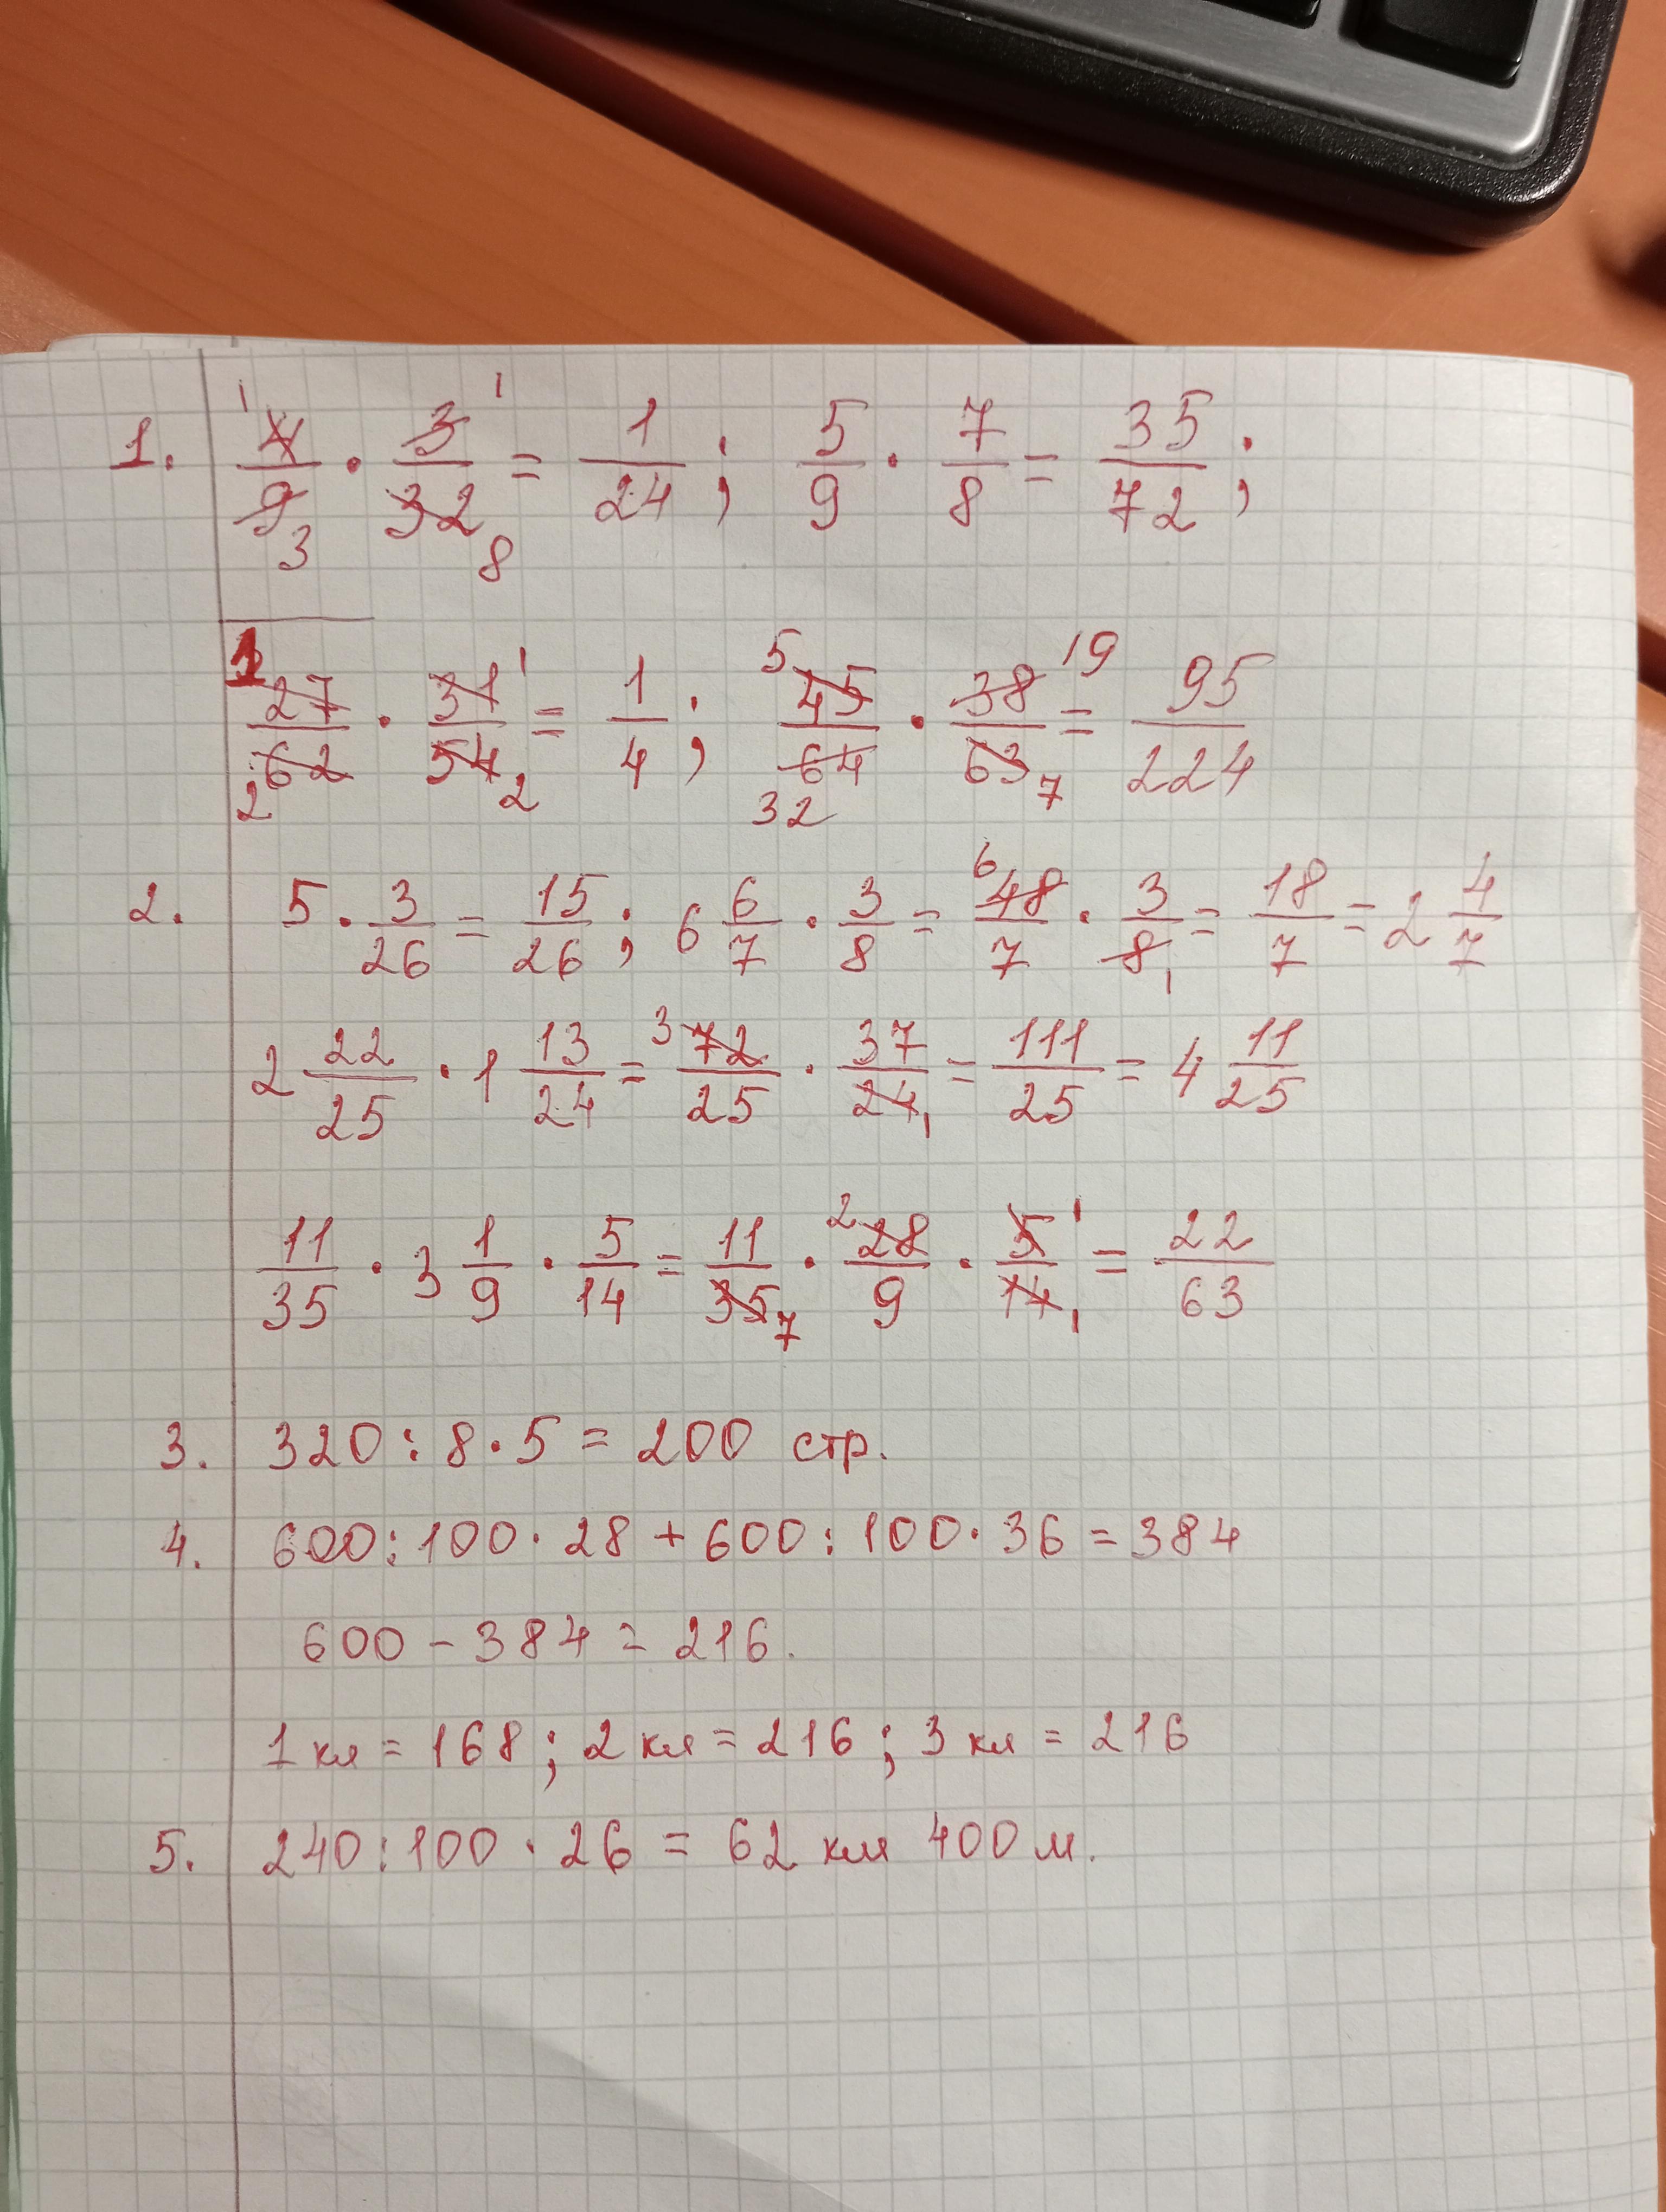 1. 4/9 · 3/32 = 1/24; 5/9 · 7/8 = 35/72;
27/62 · 31/54 = 1/4; 45/64 · 38/63 = 95/224
2. 5 · 3/26 = 15/26; 6 6/7 · 3/8 = 48/7 · 3/8 = 18/7 = 2 4/7
2 22/25 · 1 13/24 = 72/25 · 37/24 = 111/25 = 4 11/25
11/35 · 3 1/9 · 5/14 = 11/35 · 28/9 · 5/14 = 22/63
3. 320 : 8 · 5 = 200 стр.
4. 600 : 100 · 28 + 600 : 100 · 36 = 384
600 - 384 = 216.
1 кл = 168; 2 кл = 216; 3 кл = 216
5. 240 : 100 · 26 = 62 км 400 м.